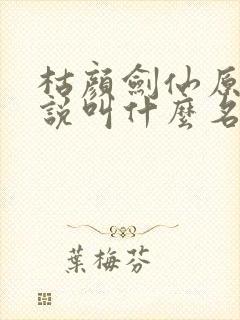 枯顏劍仙原
說叫什麼名
葉梅芬